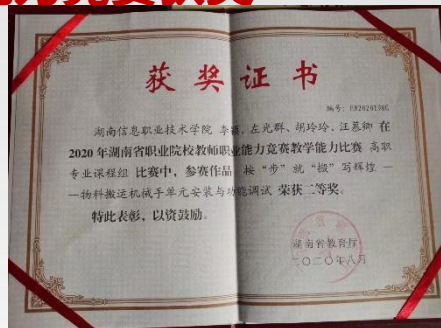 获奖证书
湖南信息职业技术学院 李 、左光群、胡玲玲、汪慕卿 在
2020 年湖南省职业院校教师职业能力竞赛教学能力比赛 高职
专业课程组 比赛中，参赛作品 按“步”就“搬”写辉煌 —
—物料搬运机械手单元安装与功能调试 荣获二等奖。
特此表彰，以资鼓励。
湖南省教育厅
二〇二〇年八月